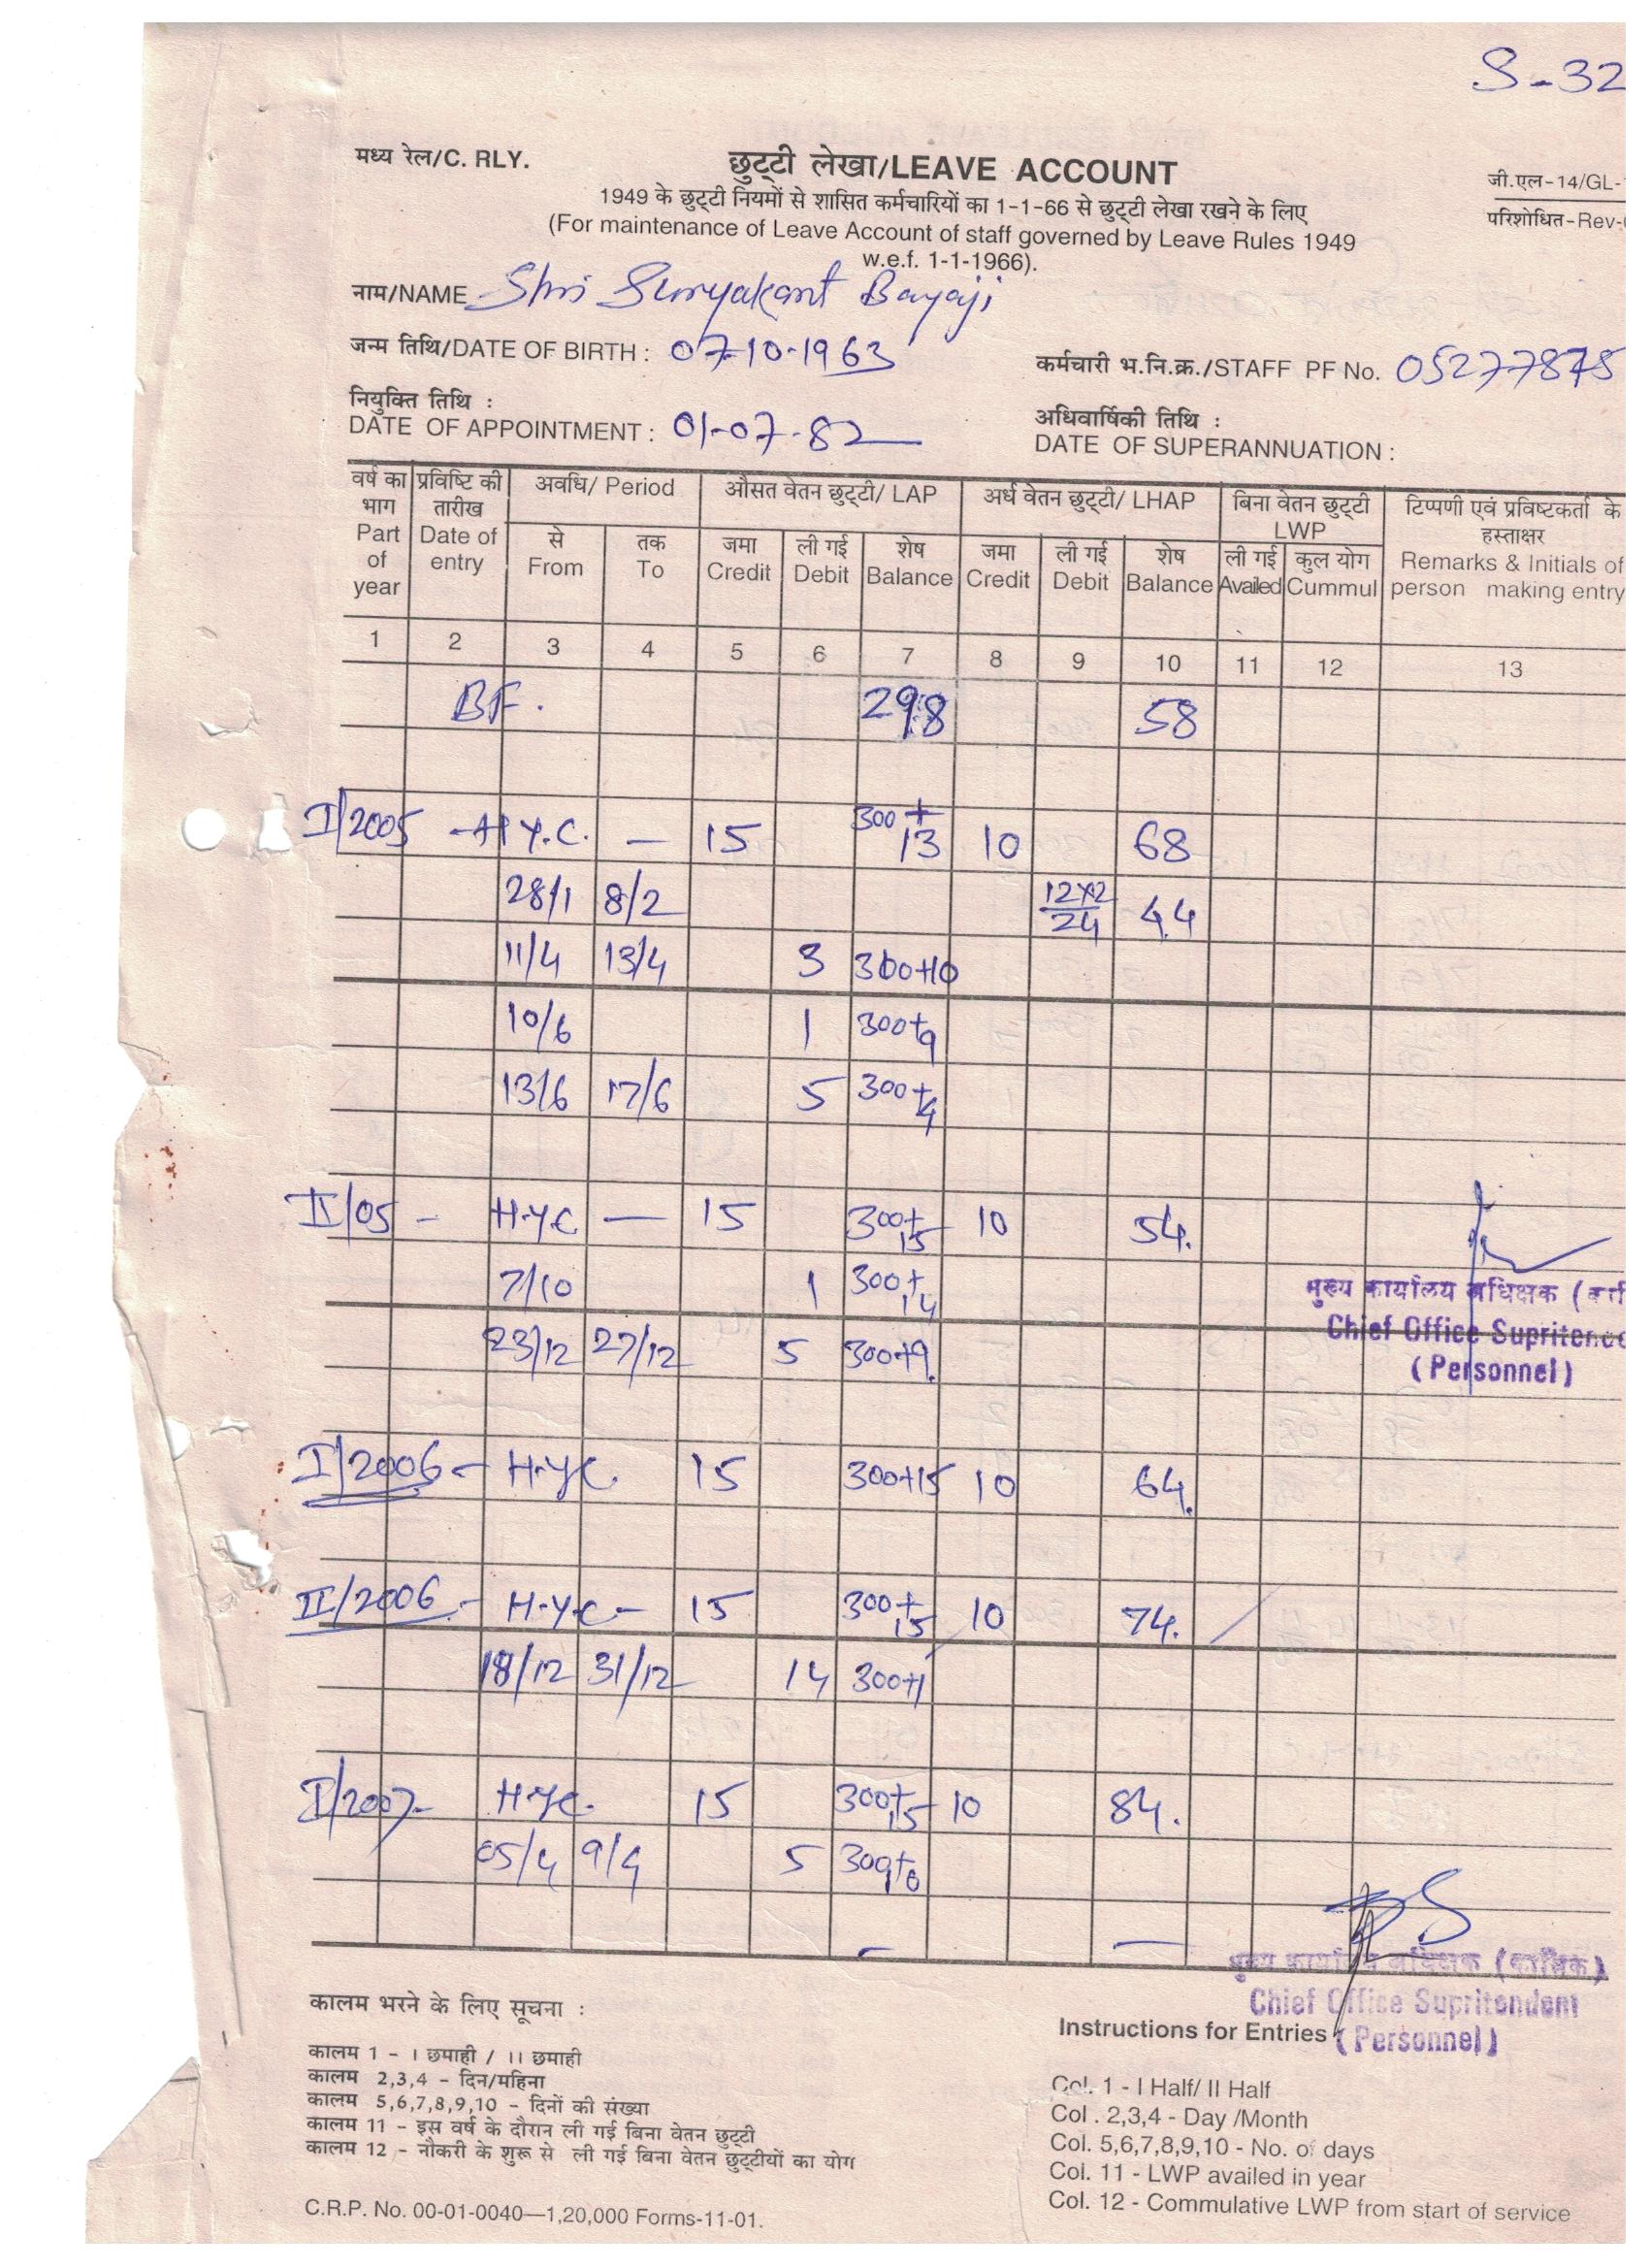 S-32
मध्य रेल/C. RLY.
छुट्टी लेखा/LEAVE ACCOUNT
जी.एल-14/GL-
1949 के छुट्टी नियमों से शासित कर्मचारियों का 1-1-66 से छुट्टी लेखा रखने के लिए
परिशोधित-Rev-
(For maintenance of Leave Account of staff governed by Leave Rules 1949
w.e.f. 1-1-1966).
नाम/NAME Shri Suryakant Bayaji
जन्म तिथि/DATE OF BIRTH : 07-10-1963
कर्मचारी भ.नि.क्र./STAFF PF No. 05277875
नियुक्ति तिथि :
DATE OF APPOINTMENT : 01-07-82
अधिवार्षिकी तिथि :
DATE OF SUPERANNUATION :
वर्ष का भाग Part of year
प्रविष्टि की तारीख Date of entry
अवधि/ Period
औसत वेतन छुट्टी/ LAP
अर्ध वेतन छुट्टी/ LHAP
बिना वेतन छुट्टी LWP
टिप्पणी एवं प्रविष्टकर्ता के हस्ताक्षर Remarks & Initials of person making entry
से From तक To जमा Credit ली गई Debit शेष Balance जमा Credit ली गई Debit शेष Balance ली गई Availed कुल योग Cummul
1 2 3 4 5 6 7 8 9 10 11 12 13
BF. 298 58
I/2005 - H.Y.C. — 15 300+13 10 68
28/1 8/2 12x2 24 44
11/4 13/4 3 300+10
10/6 1 300+9
13/6 17/6 5 300+4
II/05 - H.Y.C — 15 300+15 10 54.
7/10 1 300+14
मुख्य कार्यालय अधिक्षक
23/12 27/12 5 300+9.
Chief Office Supritend
(Personnel)
I/2006 - H.Y.C. 15 300+15 10 64.
II/2006 - H.Y.C - 15 300+15 10 74.
18/12 31/12 14 300+1
I/2007- H.Y.C. 15 300+15 10 84.
05/4 9/4 5 300+10
मुख्य कार्यालय अधिक्षक (कार्मिक)
Chief Office Supritendent
(Personnel)
कालम भरने के लिए सूचना :
कालम 1 - I छमाही / II छमाही
कालम 2,3,4 - दिन/महिना
कालम 5,6,7,8,9,10 - दिनों की संख्या
कालम 11 - इस वर्ष के दौरान ली गई बिना वेतन छुट्टी
कालम 12 - नौकरी के शुरू से ली गई बिना वेतन छुट्टीयों का योग
Instructions for Entries
Col. 1 - I Half/ II Half
Col . 2,3,4 - Day /Month
Col. 5,6,7,8,9,10 - No. of days
Col. 11 - LWP availed in year
Col. 12 - Commulative LWP from start of service
C.R.P. No. 00-01-0040—1,20,000 Forms-11-01.